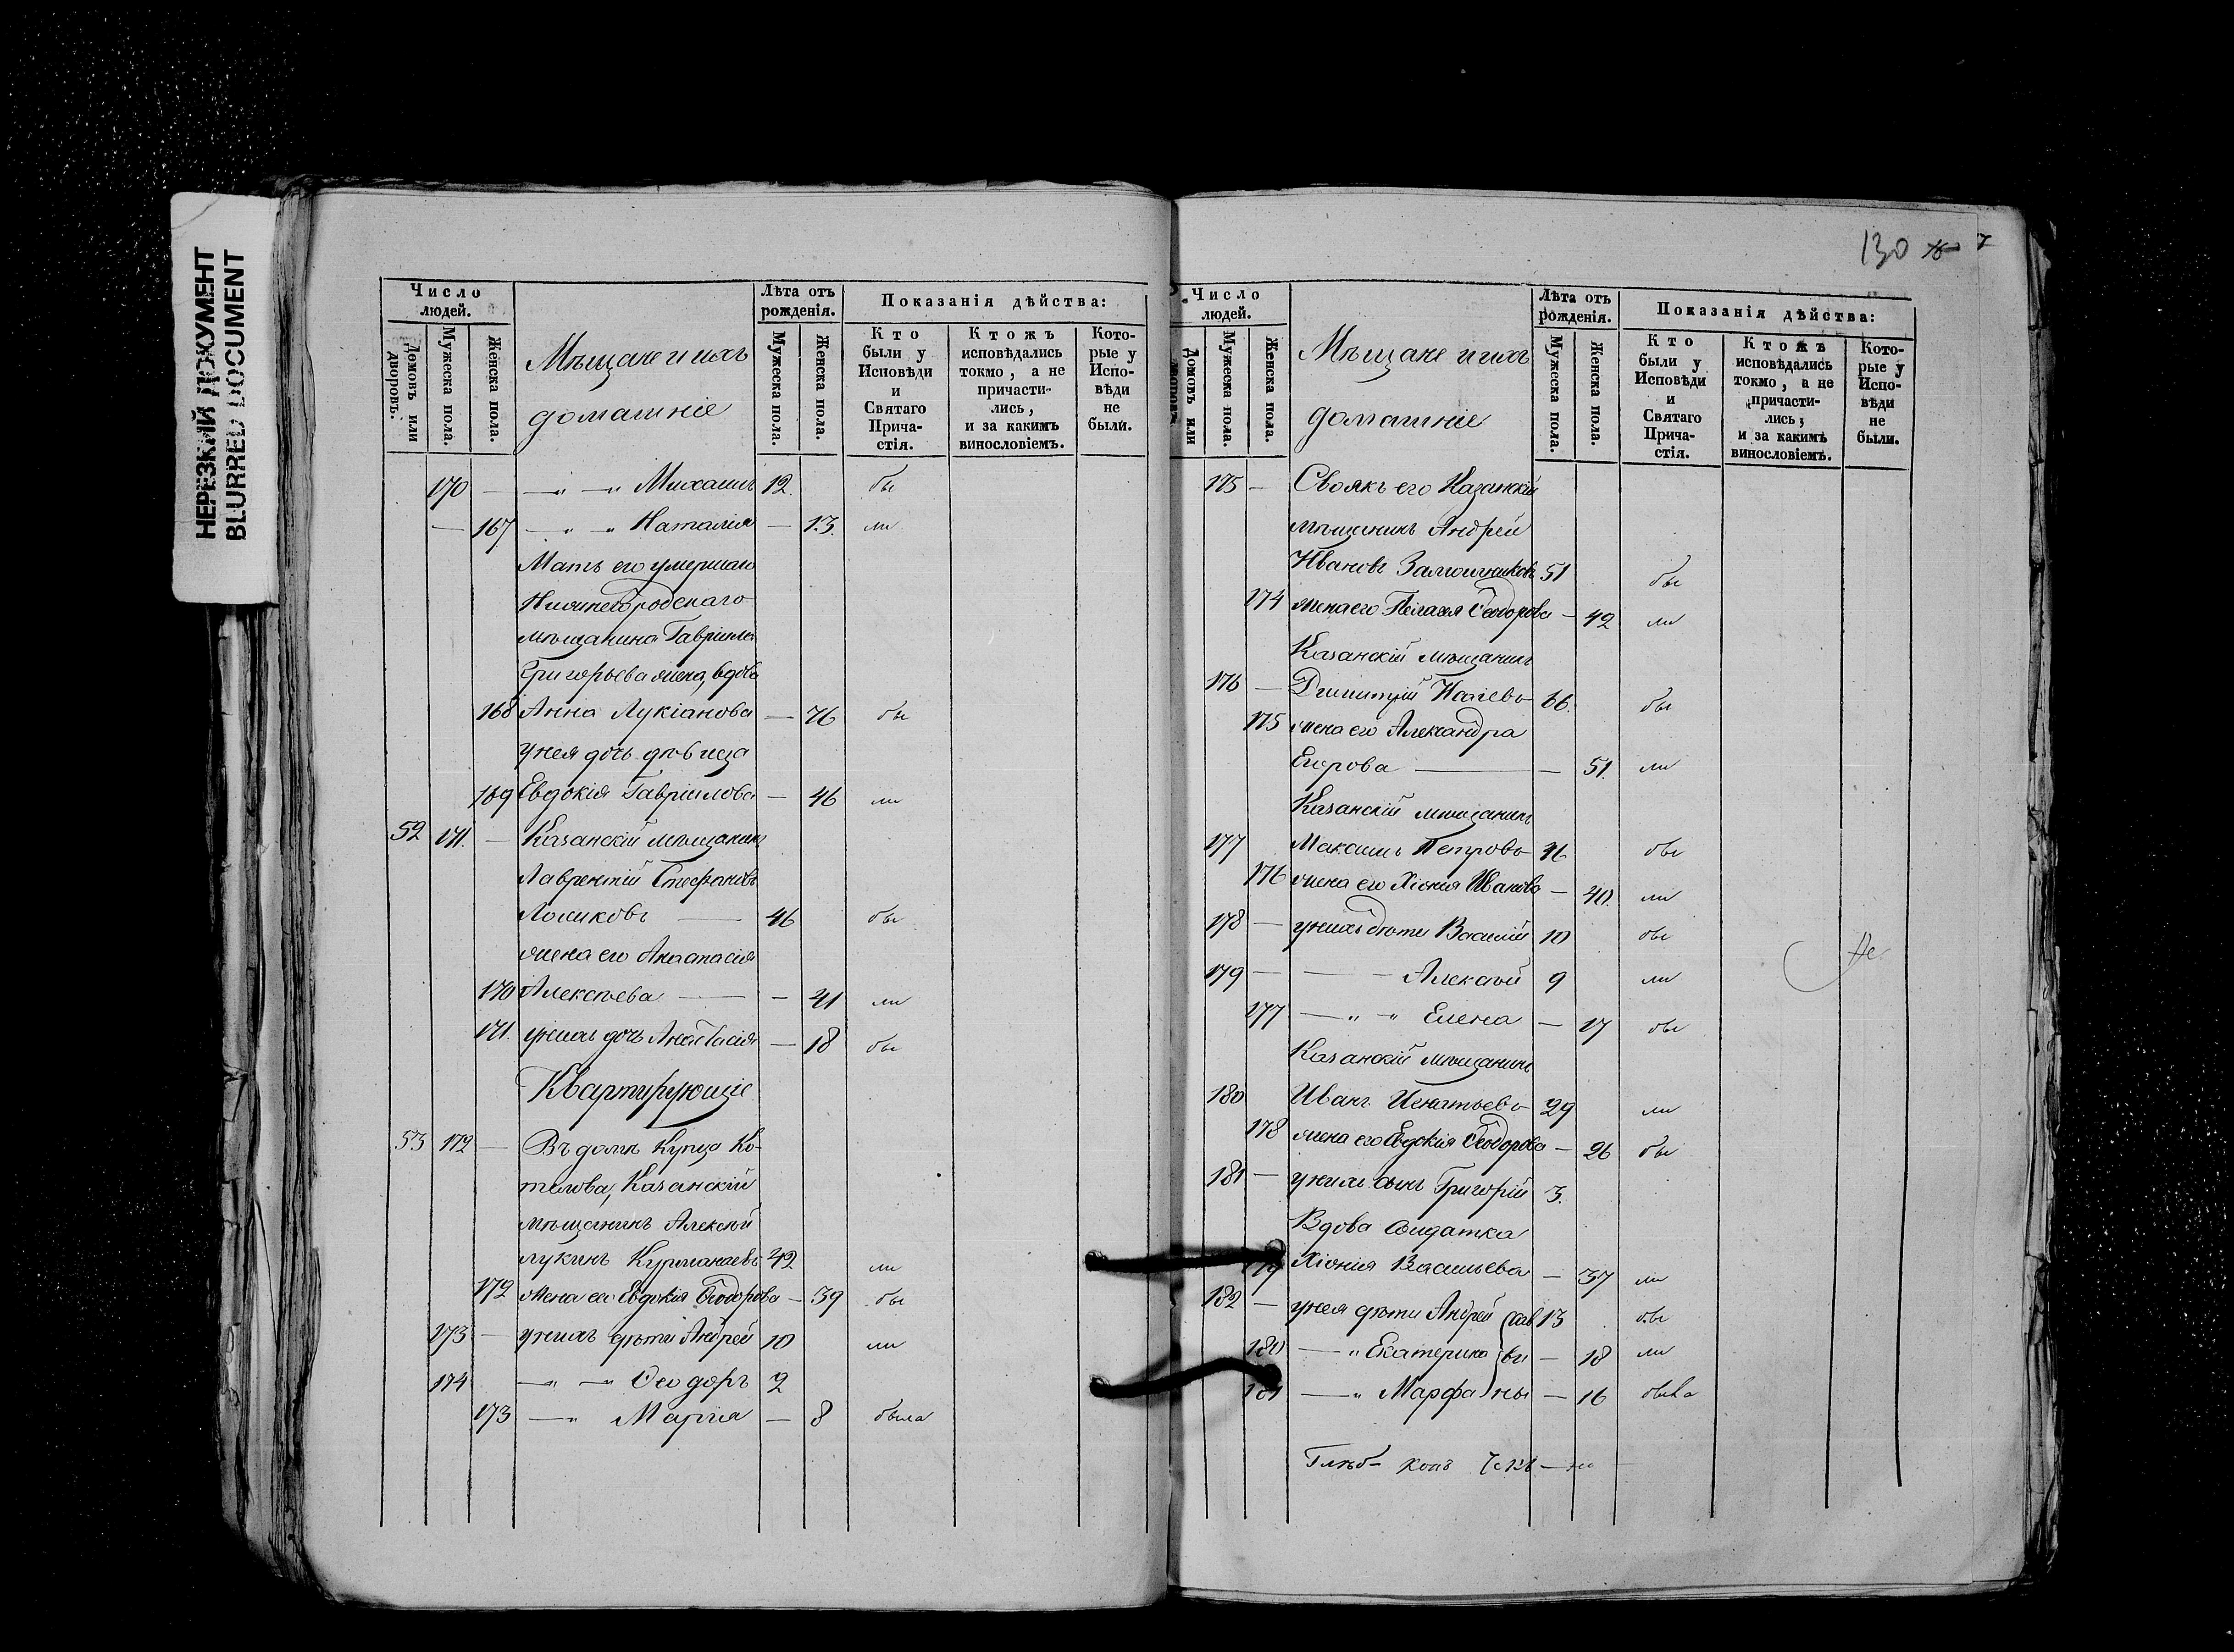 НЕРЕЗКИЙ ДОКУМЕНТ
BLURRED DOCUMENT
Число людей.
Лѣта отъ рожденія.
Показанія дѣйства:
Домовъ или дворовъ.
Мужеска пола.
Женска пола.
Мѣщане и ихъ
домашніе
Мужеска пола.
Женска пола.
Кто были у Исповѣди и Святаго Прича-стія.
Ктожъ исповѣдались токмо, а не причасти-лись, и за какимъ винословіемъ.
Кото-рые у Испо-вѣди не были.
170 — —„ —„ Михаилъ 12. бы
— 167 —„ —„ Наталія — 13. ли
Мать его умершаго
Нижнегородскаго
мѣщанина Гавріила
Григорьева жена, вдова
168 Анна Лукіанова — 76 бы
у нея дочь дѣвица
169 Евдокія Гавріилова — 46 ли
52 171. — Казанскій мѣщанинъ
Лаврентій Стефановъ
46 бы
жена его Анастасія
170 Алексѣева — — 41 ли
171. у нихъ дочь Анастасія — 18 бы
Квартирующіе
53 172 — Въ домѣ купца Ко-
телова, Казанскій
мѣщанинъ Алексѣй
Лукинъ Курманаевъ 42 ли
172 Жена его Евдокія Ѳеодорова — 39 бы
173 — у нихъ дѣти Андрей 10 ли
174 —„ —„ Ѳеодоръ 2
173 —„ Марія — 8 была
130
Число людей.
Лѣта отъ рожденія.
Показанія дѣйства:
Домовъ или дворовъ
Мужеска пола.
Женска пола.
Мѣщане и ихъ
домашніе
Мужеска пола.
Женска пола.
Кто были у Исповѣди и Святаго Прича-стія.
Ктожъ исповѣдались токмо, а не причасти-лись, и за какимъ винословіемъ.
Кото-рые у Испо-вѣди не были.
175 — Своякъ его Казанскій
мѣщанинъ Андрей
Ивановъ 51 бы
174 жена его Пелагея Ѳеодорова — 42 ли
Казанскій мѣщанинъ
176 — Димитрій Исаевъ 66. бы
175 жена его Александра
Егорова — — 51. ли
Казанскій мѣщанинъ
177 Максимъ Петровъ 46 бы
176 жена его Хіонія Иванова — 40. ли
178 — у нихъ дѣти Василій 10 бы
179 — — Алексѣй 9 ли
177 —„ —„ Елена — 17 бы
Казанскій мѣщанинъ
180 Иванъ Игнатьевъ 29 ли
178 жена его Евдокія Ѳеодорова — 26 бы
181 — у нихъ сынъ Григорій 3.
Вдова солдатка
179 Хіонія Васильева — 37 ли
182 — у нея дѣти Андрей 13 бы
180 —„ Екатерина — 18 ли
181 —„ Марфа — 16 была